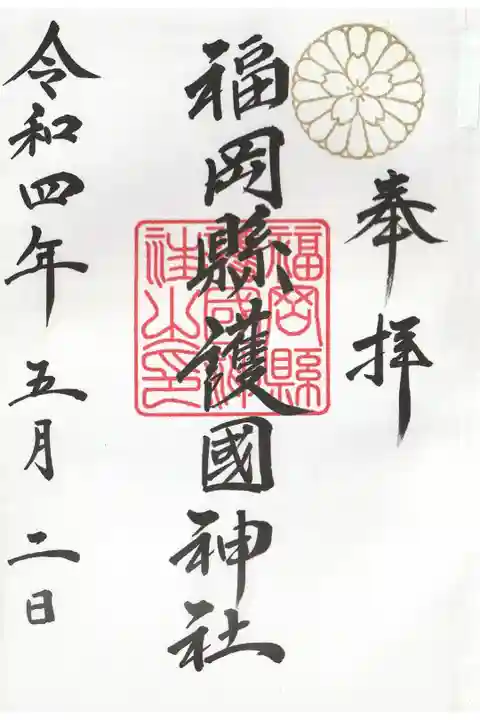 奉拝
福岡縣護國神社
令和四年五月二日
福岡縣